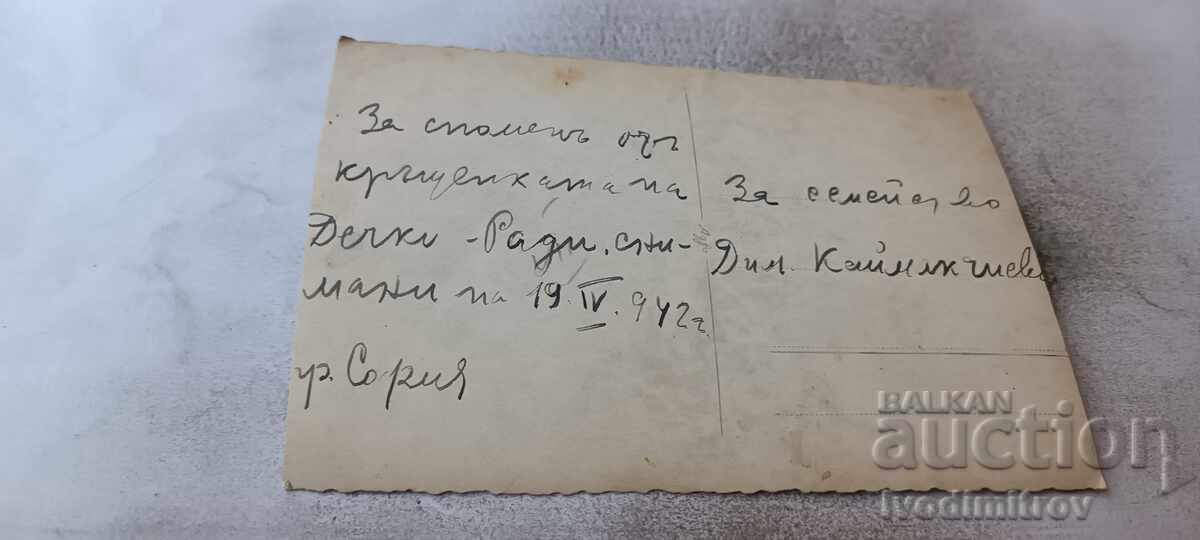 За споменъ отъ
кръщенката на
Дечко - Ради, сни-
мани на 19.IV.942г.
гр. София
За семейство
Дим. Каймакчиеви
BALKAN
auction
Ivodimitrov